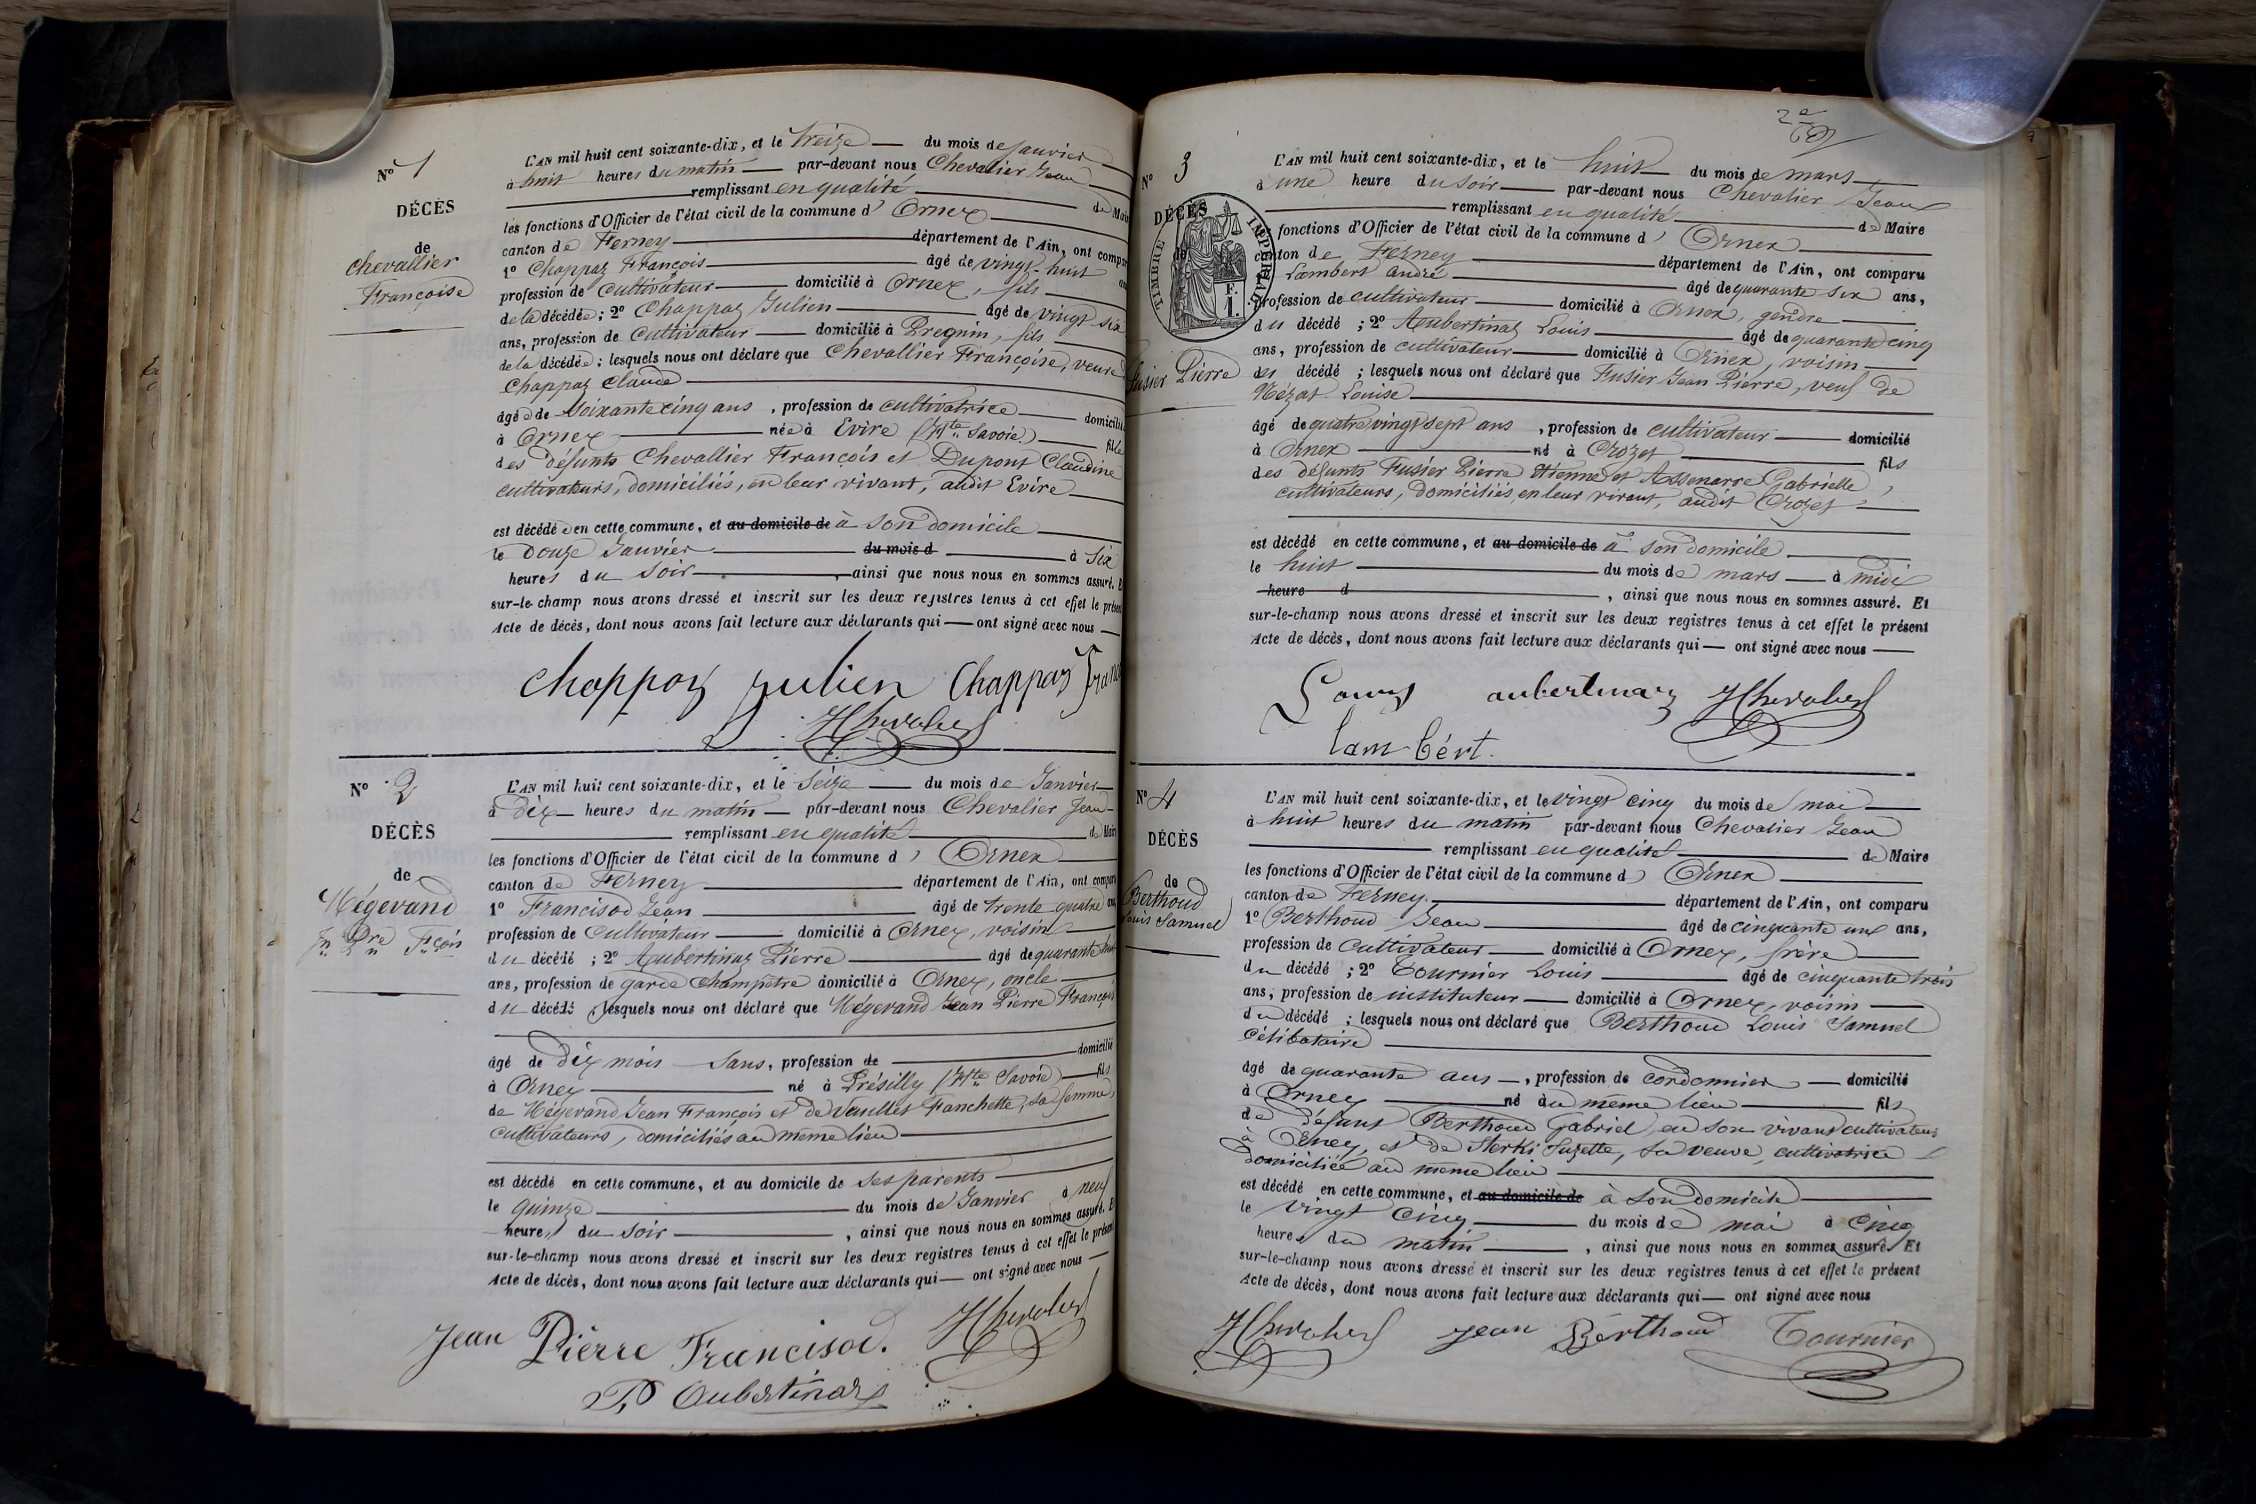 N° 1
DÉCÈS
de
Chevallier
Françoise
L'AN mil huit cent soixante-dix, et le treize du mois de Janvier
à huit heures du matin par-devant nous Chevalier Jean
remplissant en qualité de Mai
les fonctions d'Officier de l'état civil de la commune d' Ornex
canton de Ferney département de l'Ain, ont compar
1° Chappaz François âgé de vingt-huit an
profession de cultivateur domicilié à Ornex, fils
de la décédée ; 2° Chappaz Julien âgé de vingt six
ans, profession de cultivateur domicilié à Pregnin, fils
de la décédée ; lesquels nous ont déclaré que Chevallier Françoise, veuve
Chappaz Claude
âgée de soixante cinq ans , profession de cultivatrice domicilié
à Ornex née à Evire (Hte Savoie) fille
des défunts Chevallier François et Dupont Claudine
cultivateurs, domiciliés, en leur vivant, audit Evire
est décédée en cette commune, et au domicile de à son domicile
le douze Janvier du mois d à six
heures du soir , ainsi que nous nous en sommes assuré. E
sur-le-champ nous avons dressé et inscrit sur les deux registres tenus à cet effet le présent
Acte de décès, dont nous avons fait lecture aux déclarants qui ont signé avec nous
Chappaz Julien Chappaz Franc
JChevalier
N° 2
DÉCÈS
de
Mégevand
Jn Pre Fçois
L'AN mil huit cent soixante-dix, et le seize du mois de Janvier
à dix heures du matin par-devant nous Chevalier Jean
remplissant en qualité de Mair
les fonctions d'Officier de l'état civil de la commune d' Ornex
canton de Ferney département de l'Ain, ont comparu
1° Francisod Jean âgé de trente quatre an
profession de cultivateur domicilié à Ornex, voisin
du décédé ; 2° Aubertinaz Pierre âgé de quarante
ans, profession de garde champêtre domicilié à Ornex, oncle
du décédé ; lesquels nous ont déclaré que Mégevand Jean Pierre François
âgé de dix mois sans, profession de domicilié
à Ornex né à Présilly (Hte Savoie) fils
de Mégevand Jean François et de Fanchette, sa femme,
cultivateurs, domiciliés au même lieu
est décédé en cette commune, et au domicile de ses parents
le quinze du mois de Janvier à neuf
heures du soir , ainsi que nous nous en sommes assuré. E
sur-le-champ nous avons dressé et inscrit sur les deux registres tenus à cet effet le présent
Acte de décès, dont nous avons fait lecture aux déclarants qui ont signé avec nous
Jean Pierre Francisod. JChevalier
P Aubertinaz
2e
N° 3
DÉCÈS
de
TIMBRE IMPÉRIAL
F.
1.
Fusier Pierre
L'AN mil huit cent soixante-dix, et le huit du mois de mars
à une heure du soir par-devant nous Chevalier Jean
remplissant en qualité de Maire
fonctions d'Officier de l'état civil de la commune d' Ornex
canton de Ferney département de l'Ain, ont comparu
Lambert André âgé de quarante six ans,
profession de cultivateur domicilié à Ornex, gendre
du décédé ; 2° Aubertinaz Louis âgé de quarante cinq
ans, profession de cultivateur domicilié à Ornex, voisin
du décédé ; lesquels nous ont déclaré que Fusier Jean Pierre, veuf de
Mézat Louise
âgé de quatre vingt sept ans , profession de cultivateur domicilié
à Ornex né à Crozet fils
des défunts Fusier Pierre Etienne et Assenarre Gabrielle,
cultivateurs, domiciliés, en leur vivant, audit Crozet
est décédé en cette commune, et au domicile de à son domicile
le huit du mois de mars à midi
heure d , ainsi que nous nous en sommes assuré. Et
sur-le-champ nous avons dressé et inscrit sur les deux registres tenus à cet effet le présent
Acte de décès, dont nous avons fait lecture aux déclarants qui ont signé avec nous
Louis aubertinaz JChevalier
lambért.
N° 4
DÉCÈS
de
Berthoud
Louis Samuel
L'AN mil huit cent soixante-dix, et le vingt cinq du mois de mai
à huit heures du matin par-devant nous Chevalier Jean
remplissant en qualité de Maire
les fonctions d'Officier de l'état civil de la commune d' Ornex
canton de Ferney département de l'Ain, ont comparu
1° Berthoud Jean âgé de cinquante un ans,
profession de cultivateur domicilié à Ornex, frère
du décédé ; 2° Tournier Louis âgé de cinquante trois
ans, profession de instituteur domicilié à Ornex, voisin
du décédé ; lesquels nous ont déclaré que Berthoud Louis Samuel
célibataire
âgé de quarante ans , profession de cordonnier domicilié
à Ornex né au même lieu fils
de défunt Berthoud Gabriel, en son vivant cultivateur
à Ornex, et de Sterki Suzette, sa veuve, cultivatrice
domiciliée au même lieu
est décédé en cette commune, et au domicile de à son domicile
le vingt cinq du mois de mai à cinq
heures du matin , ainsi que nous nous en sommes assuré. Et
sur-le-champ nous avons dressé et inscrit sur les deux registres tenus à cet effet le présent
Acte de décès, dont nous avons fait lecture aux déclarants qui ont signé avec nous
JChevalier Jean Bérthoud Tournier